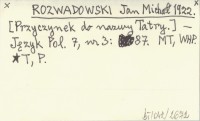 ROZWADOWSKI Jan Michał 1922.
[Przyczynek do nazwy Tatry.] —
Język Pol. 7, nr 3: 87. MT, WHP.
*T, P.